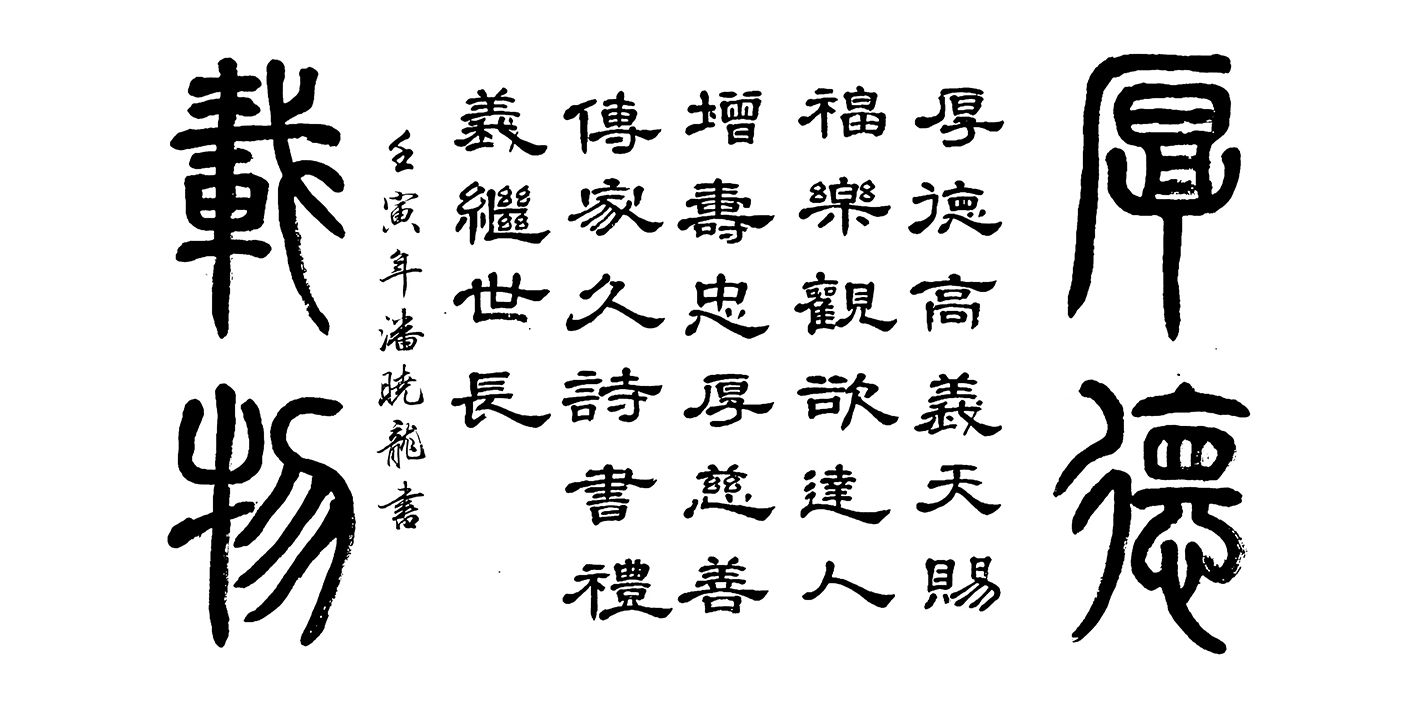 厚德
厚德高義天賜
福樂觀欲達人
增壽忠厚慈善
傳家久詩書禮
義繼世長
壬寅年潘曉龍書
載物